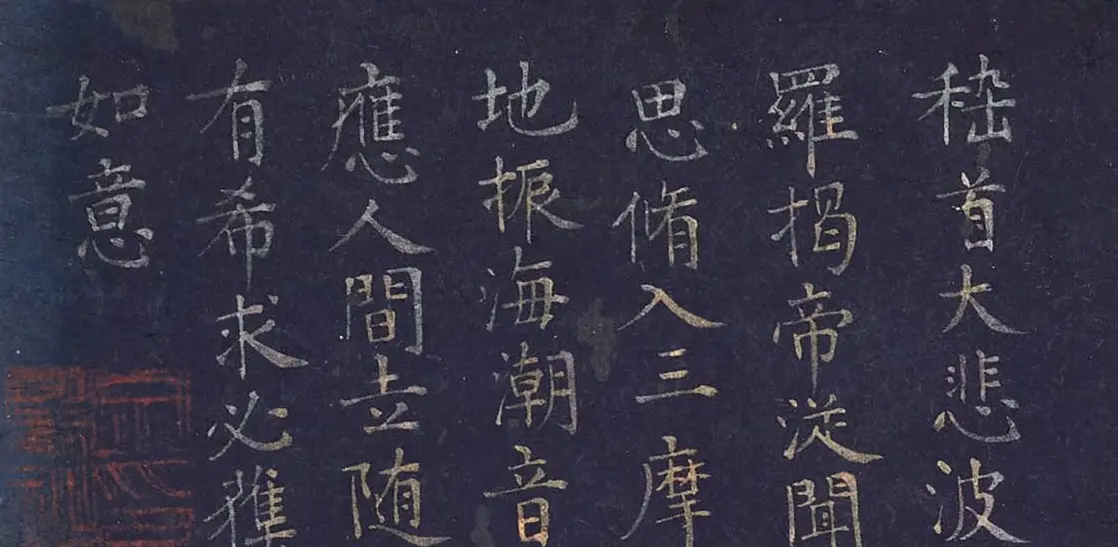 稽首大悲波
羅揭帝從聞
思脩入三摩
地振海潮音
應人間世随
有希求必獲
如意